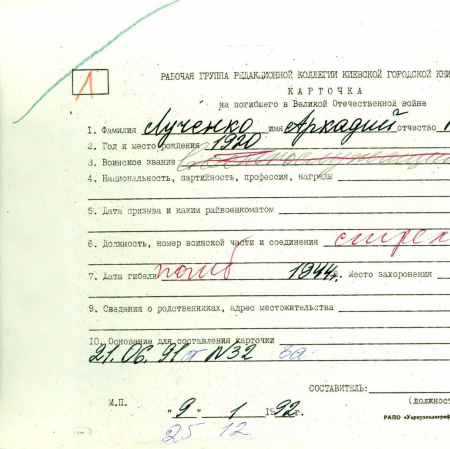 Л
РАБОЧАЯ ГРУППА РЕДАКЦИОННОЙ КОЛЛЕГИИ КИЕВСКОЙ ГОРОДСКОЙ КНИ
КАРТОЧКА
на погибшего в Великой Отечественной войне
1. Фамилия Лученко имя Аркадий отчество
2. Год и место рождения 1920
3. Воинское звание военнослужащий
4. Национальность, партийность, профессия, награды
5. Дата призыва и каким райвоенкоматом
6. Должность, номер воинской части и соединения стрел
7. Дата гибели погиб 1944г. 8. Место захоронения
9. Сведения о родственниках, адрес местожительства
10. Основание для составления карточки
21.06.91 от N32 за
СОСТАВИТЕЛЬ:
(должност
М.П. "9" 1 1992
25 12
РАПО «Укрвузполиграф